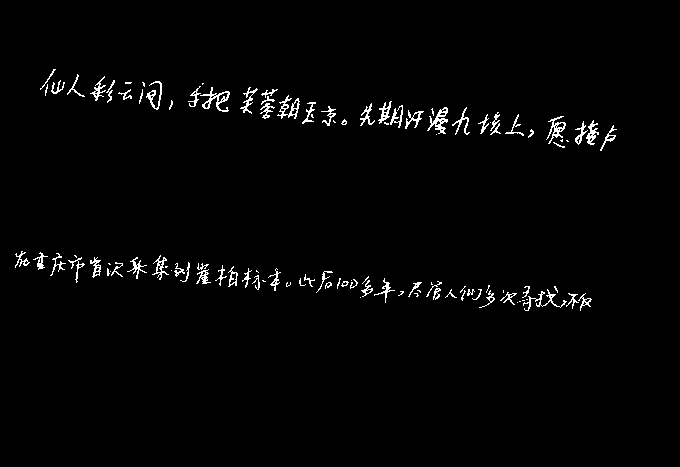 仙人彩云间，手把芙蓉朝玉京。先期汗漫九垓上，愿接卢
在重庆市首次采集到崖柏标本。此后100多年，尽管人们多次寻找，不仅